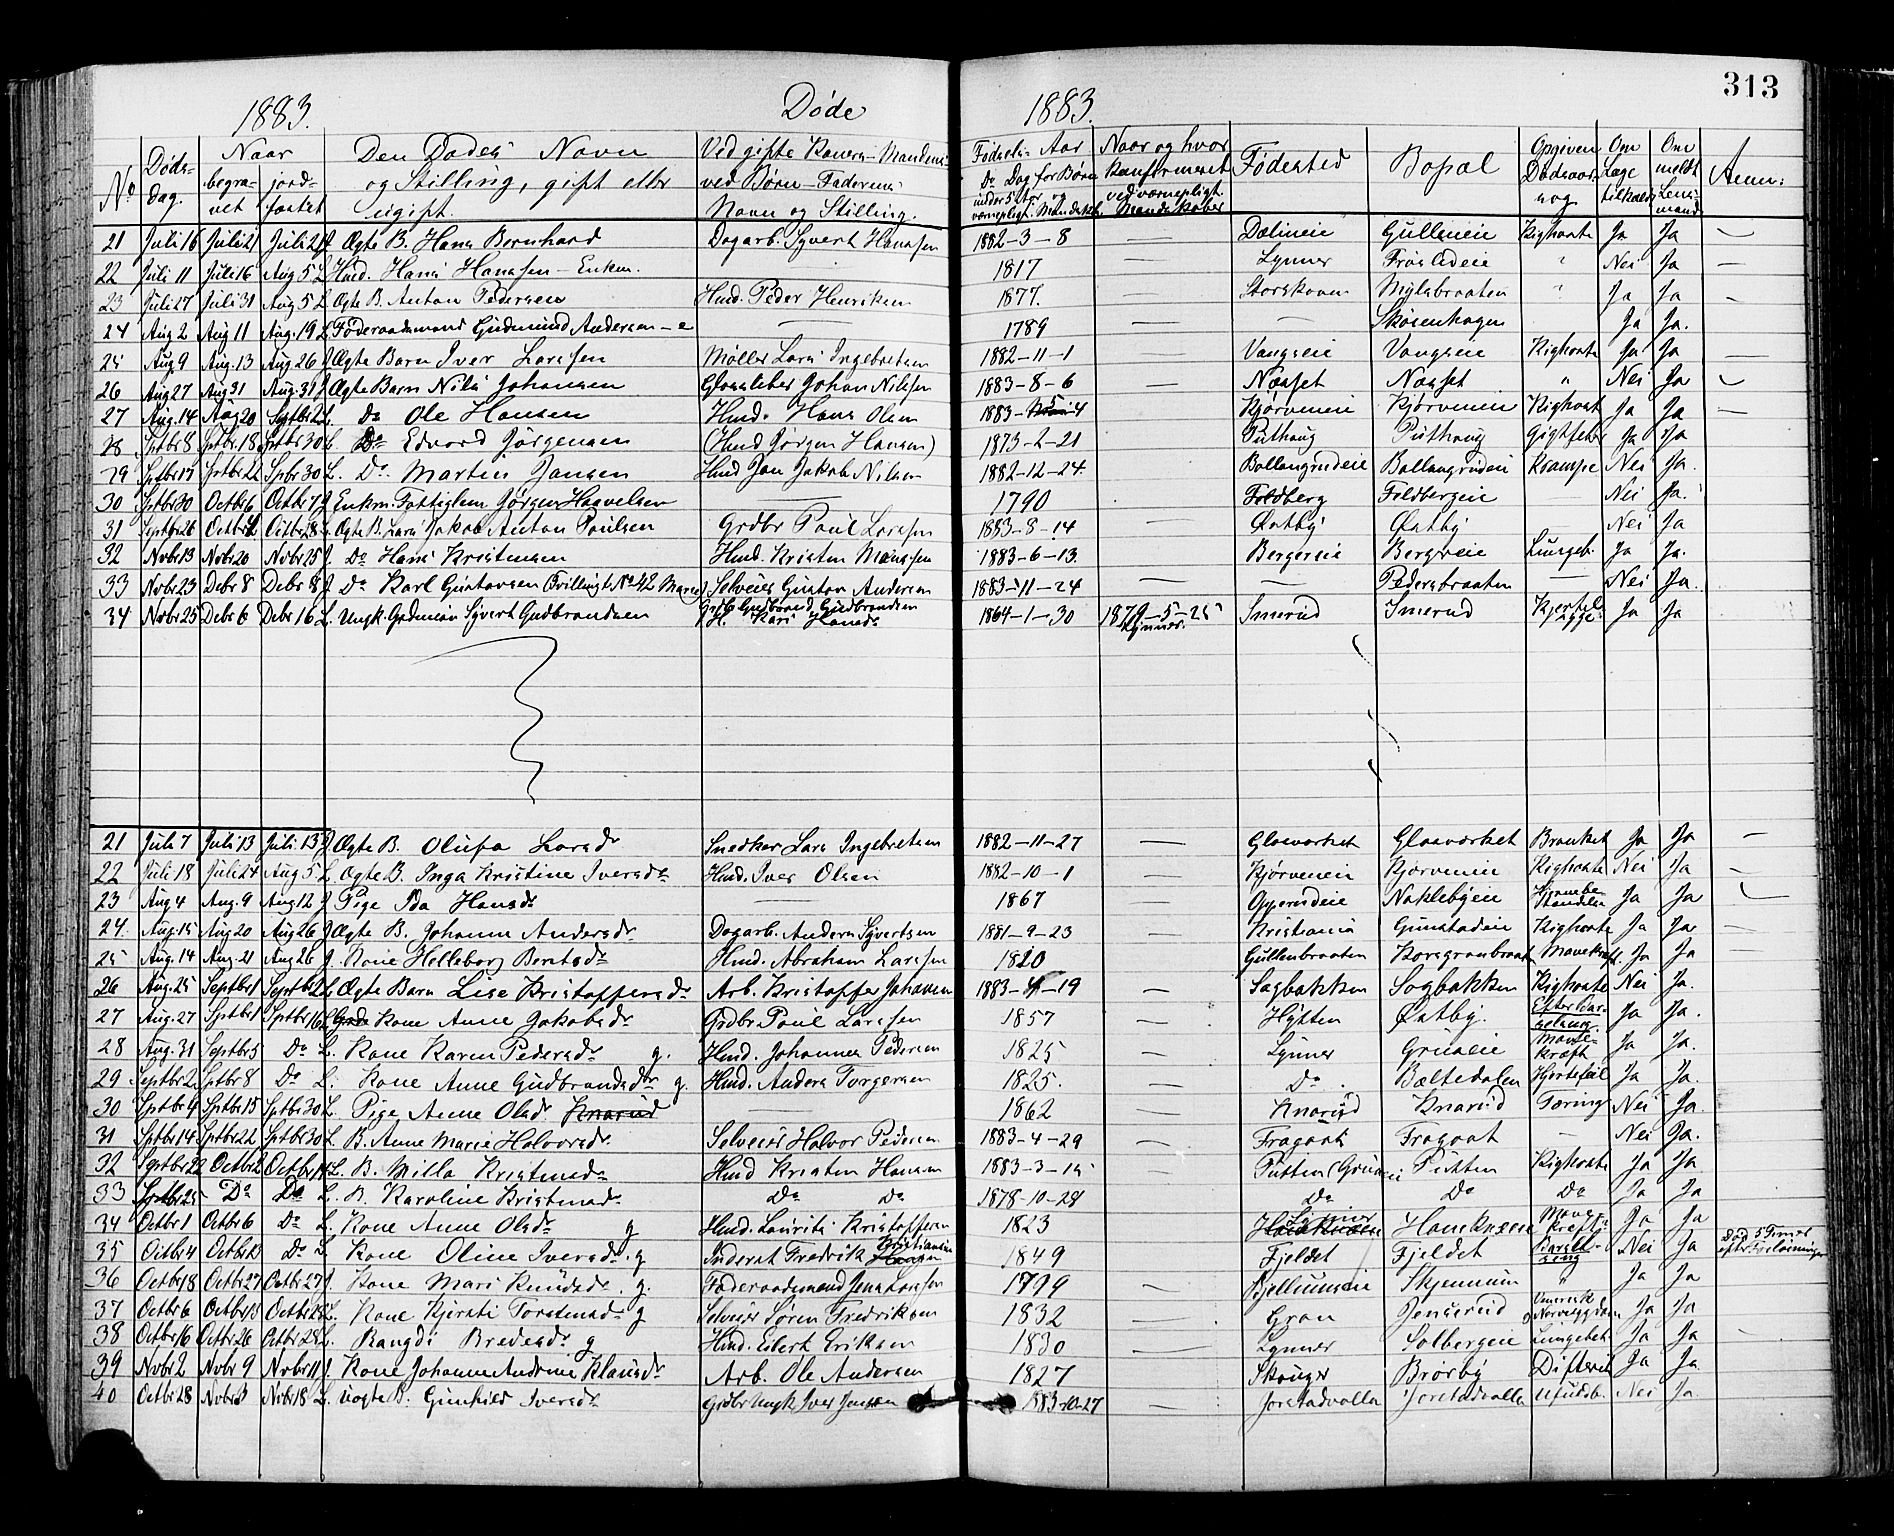 313
1883. Døde 1883.
No Døds-Dag. Naar begravet jordfæstet Den Dødes Navn og Stilling, gift eller ugift. Ved gifte Koners Mandens ved Børn Faderens Navn og Stilling. Fødsels Aar Do Dag for Børn under 5 Aar og værnepligt. Mandskab Naar og hvor konfirmeret ved værnepligt. Mandskaber Fødested Bopæl Opgiven Dødsaarsag Om Læge tilkaldt Om meldt Lensmand Anm:
21 Juli 16 Juli 21 Juli 21 J Ægte B. Hans Bernhard Dagarb. Syvert Hanssen 1882-3-8 — Dælineie Gulleneie Kighoste Ja Ja —
22 Juli 11 Juli 16 Aug 5 L Hmd. Hans Hanssen - Enkm. 1817 — Lynner " Nei Ja —
23 Juli 27 Juli 31 Aug 5 L Ægte B. Anton Pedersen Hmd. Peder Henriksen 1877. — Storskoven Mylebraaten " Ja Ja —
24 Aug 2 Aug 11 Aug. 19 L Føderaadsmand Gudmund Andersen - e — 1789 — — Skøienhagen Ja Ja.
25 Aug 9 Aug. 13 Aug 26 J Ægte Barn Iver Larssen Møller Lars Ingebretsen 1882-11-1 — Vangseie Vangseie Kighoste Ja Ja —
26 Aug 27 Aug 31 Aug. 31 J Ægte Barn Nils Johansen Johan Nilssen 1883-8-6 — Næsset Næsset " Nei Ja
27 Aug. 14 Aug 20 Septbr 2 L. Do Ole Hansen Hmd. Hans Olsen 1883- 4 Kjørveneie Kjørveneie Kighoste Ja Ja —
28 Sptbr 8 Sptbr. 18 Sptbr 30 L. Do Edvard Jørgensen (Hmd Jørgen Hansen) 1873-2-21 Puthaug Puthaug Gigtfeber Ja Ja
29 Sptbr 17 Sptbr 22 Spbr 30 L. Do. Martin Jansen Hmd Jan Jakob Nilsen 1882-12-24. Bollangrudeie Bollangrudeie Krampe Nei Ja.
30 Sptbr 30 Octbr 6 Octbr 7 J Enkm. Fattiglem Jørgen Haavelsen — 1790 Foldberg Foldbergeie — Nei Ja.
31 Septbr 26 Octbr 2 Octbr 28 L. Ægte B. Lars Jakob Anton Paulsen Grdbr Paul Larssen 1883-8-14 — Østby Østby — Nei Ja
32 Novbr 13 Novbr 20 Novbr 25 J. Do Hans Kristensen Hmd. Kristen Monssen 1883-6-13. — Bergereie Bergereie Lungeb. Ja Ja.
33 Novbr 23 Debr 8 Debr 8 J. Do Karl Gustavsen (Tvilling t. No 42 Marie) Selveier Gustav Andersen 1883-11-24 — — Pedersbraaten — Nei Ja.
34 Novbr 25 Debr 6 Debr 16 L. Ungk. Grdmsøn Syvert Gudbrandsen Grdb Gudbrand Gudbrandsen H. Kari Hansdr 1864-1-30 1879-5-25 Lynner. Smerud Smerud Ja Ja
21 Juli 7 Juli 13 Juli 13 J Ægte B. Olufa Larsdr Snedker Lars Ingebretsen 1882-11-27 — Glasværket Glasværket Bronket Ja Ja —
22 Juli 18 Juli 24 Aug 5 L. Ægte B. Inga Kristine Iversdr Hmd. Iver Olsen 1882-10-1 — Kjørveneie Kjørveneie Kighoste Nei Ja —
23 Aug 4 Aug. 9 Aug 12 J Pige Ida Hansdr — 1867 — Opperudeie Naklebyeie Ja Ja
24. Aug. 15 Aug 20 Aug 26 J Ægte B. Johanne Andersdr Dagarb. Anders Syvertsen 1881-9-23 — Kristiania Gunstadeie Kighoste Ja Ja —
25 Aug. 14 Aug. 21 Aug 26 J. Kone Helleborg Berntsdr Hmd. Abraham Larssen 1820 — Gullenbraaten Korsgranbraat Mavekræft Ja Ja
26 Aug. 25 Septbr 1 Septbr 2 L. Ægte Barn Lise Kristoffersdr Arb. Kristoffer Johansen 1883- -19 — Sagbakken Sagbakken Kighoste Nei Ja.
27 Aug. 27 Septbr 1 Sptbr 16 L. Kone Anne Jakobsdr Grdbr Paul Larssen 1857 — Hytten Østby. Efter Barselseng. Ja Ja.
28 Aug. 31 Septbr 5 Do L. Kone Karen Pedersdr g. Hmd. Johannes Pedersen 1825 — Lynner Grinaeie Mavekræft Ja Ja.
29 Septbr 2 Sptbr 8 Do L. Kone Anne Gudbrandsdr g. Hmd. Anders Torgersen 1825. — Do. Bæltedalen Hjertefeil Ja Ja.
30 Sptbr 9 Sptbr 15 Sptbr 30 L. Pige Anne Olsdr Knarud — 1862 — Knarud Knarud Tæring Nei Ja.
31 Sptbr 14 Sptbr 22 Sptbr 30 L. B. Anne Marie Halvorsdr. Selveier Halvor Pedersen 1883-4-29 — Fragaat Fragaat — Nei Ja.
32 Septbr 22 Octbr 2 Octbr 14 L. B. Milla Kristensdr Hmd Kristen Hansen 1883-3-15 — Putten Putten Kighoste Ja Ja
33 Sptbr 25 Do Do L. B. Karoline Kristensdr. Do Do 1878-10-28 Do Do Do Ja Ja
34 Octbr 1 Octbr 6 Do L. Kone Anne Olsdr g Hmd. Laurits Kristoffersen 1823 — Honeknæene Mavekræft Ja Ja
35 Octbr 4 Octbr 13 Do L. Kone Oline Iversdr. g Inderst Fredrik Kristiansen 1849 — Fjeldet Fjeldet Barselseng Nei Ja Død 5 Timer efter Forløsningen
36 Octbr 18 Octbr 27 Octbr 27 J. Kone Mari Knudsdr. g. Føderaadsmand 1799 — Bjellumeie Skjennum " Ja Ja
37 Octbr 6 Octbr 13 Octbr 28 L. Kone Kjersti Torstensdr g Selveier Søren Fredriksen 1832 — Gran Jensrud Ja Ja
38 Octbr 16 Octbr 26 Octbr 28 L. Rangdi Bredesdr g Hmd. Eilert Eriksen 1830 — Lynner Solbergeie Lungebet. Ja Ja —
39 Novbr 2 Novbr 9 Novbr 11 J. Kone Johanne Andrine Klausdr Arb. Ole Andersen 1827 — Skouger Brørby Difterit Ja Ja
40 Octbr 28 Novbr 3 Novbr 18 L. Uægte B. Gunhild Iversdr. Grdbr Ungk Iver Jenssen 1883-10-27 — Jorstadvollen Jorstadvollen Ufuldb. Nei Ja.